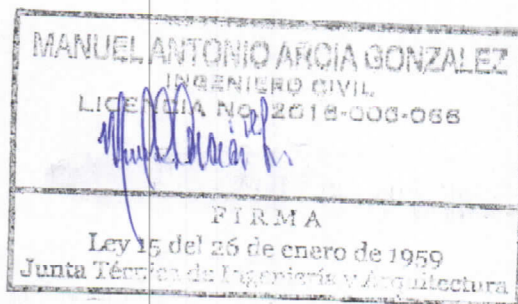 MANUEL ANTONIO ARCIA GONZALEZ
INGENIERO CIVIL
LICENCIA No. 2018-006-066
FIRMA
Ley 15 del 26 de enero de 1959
Junta Técnica de Ingeniería y Arquitectura